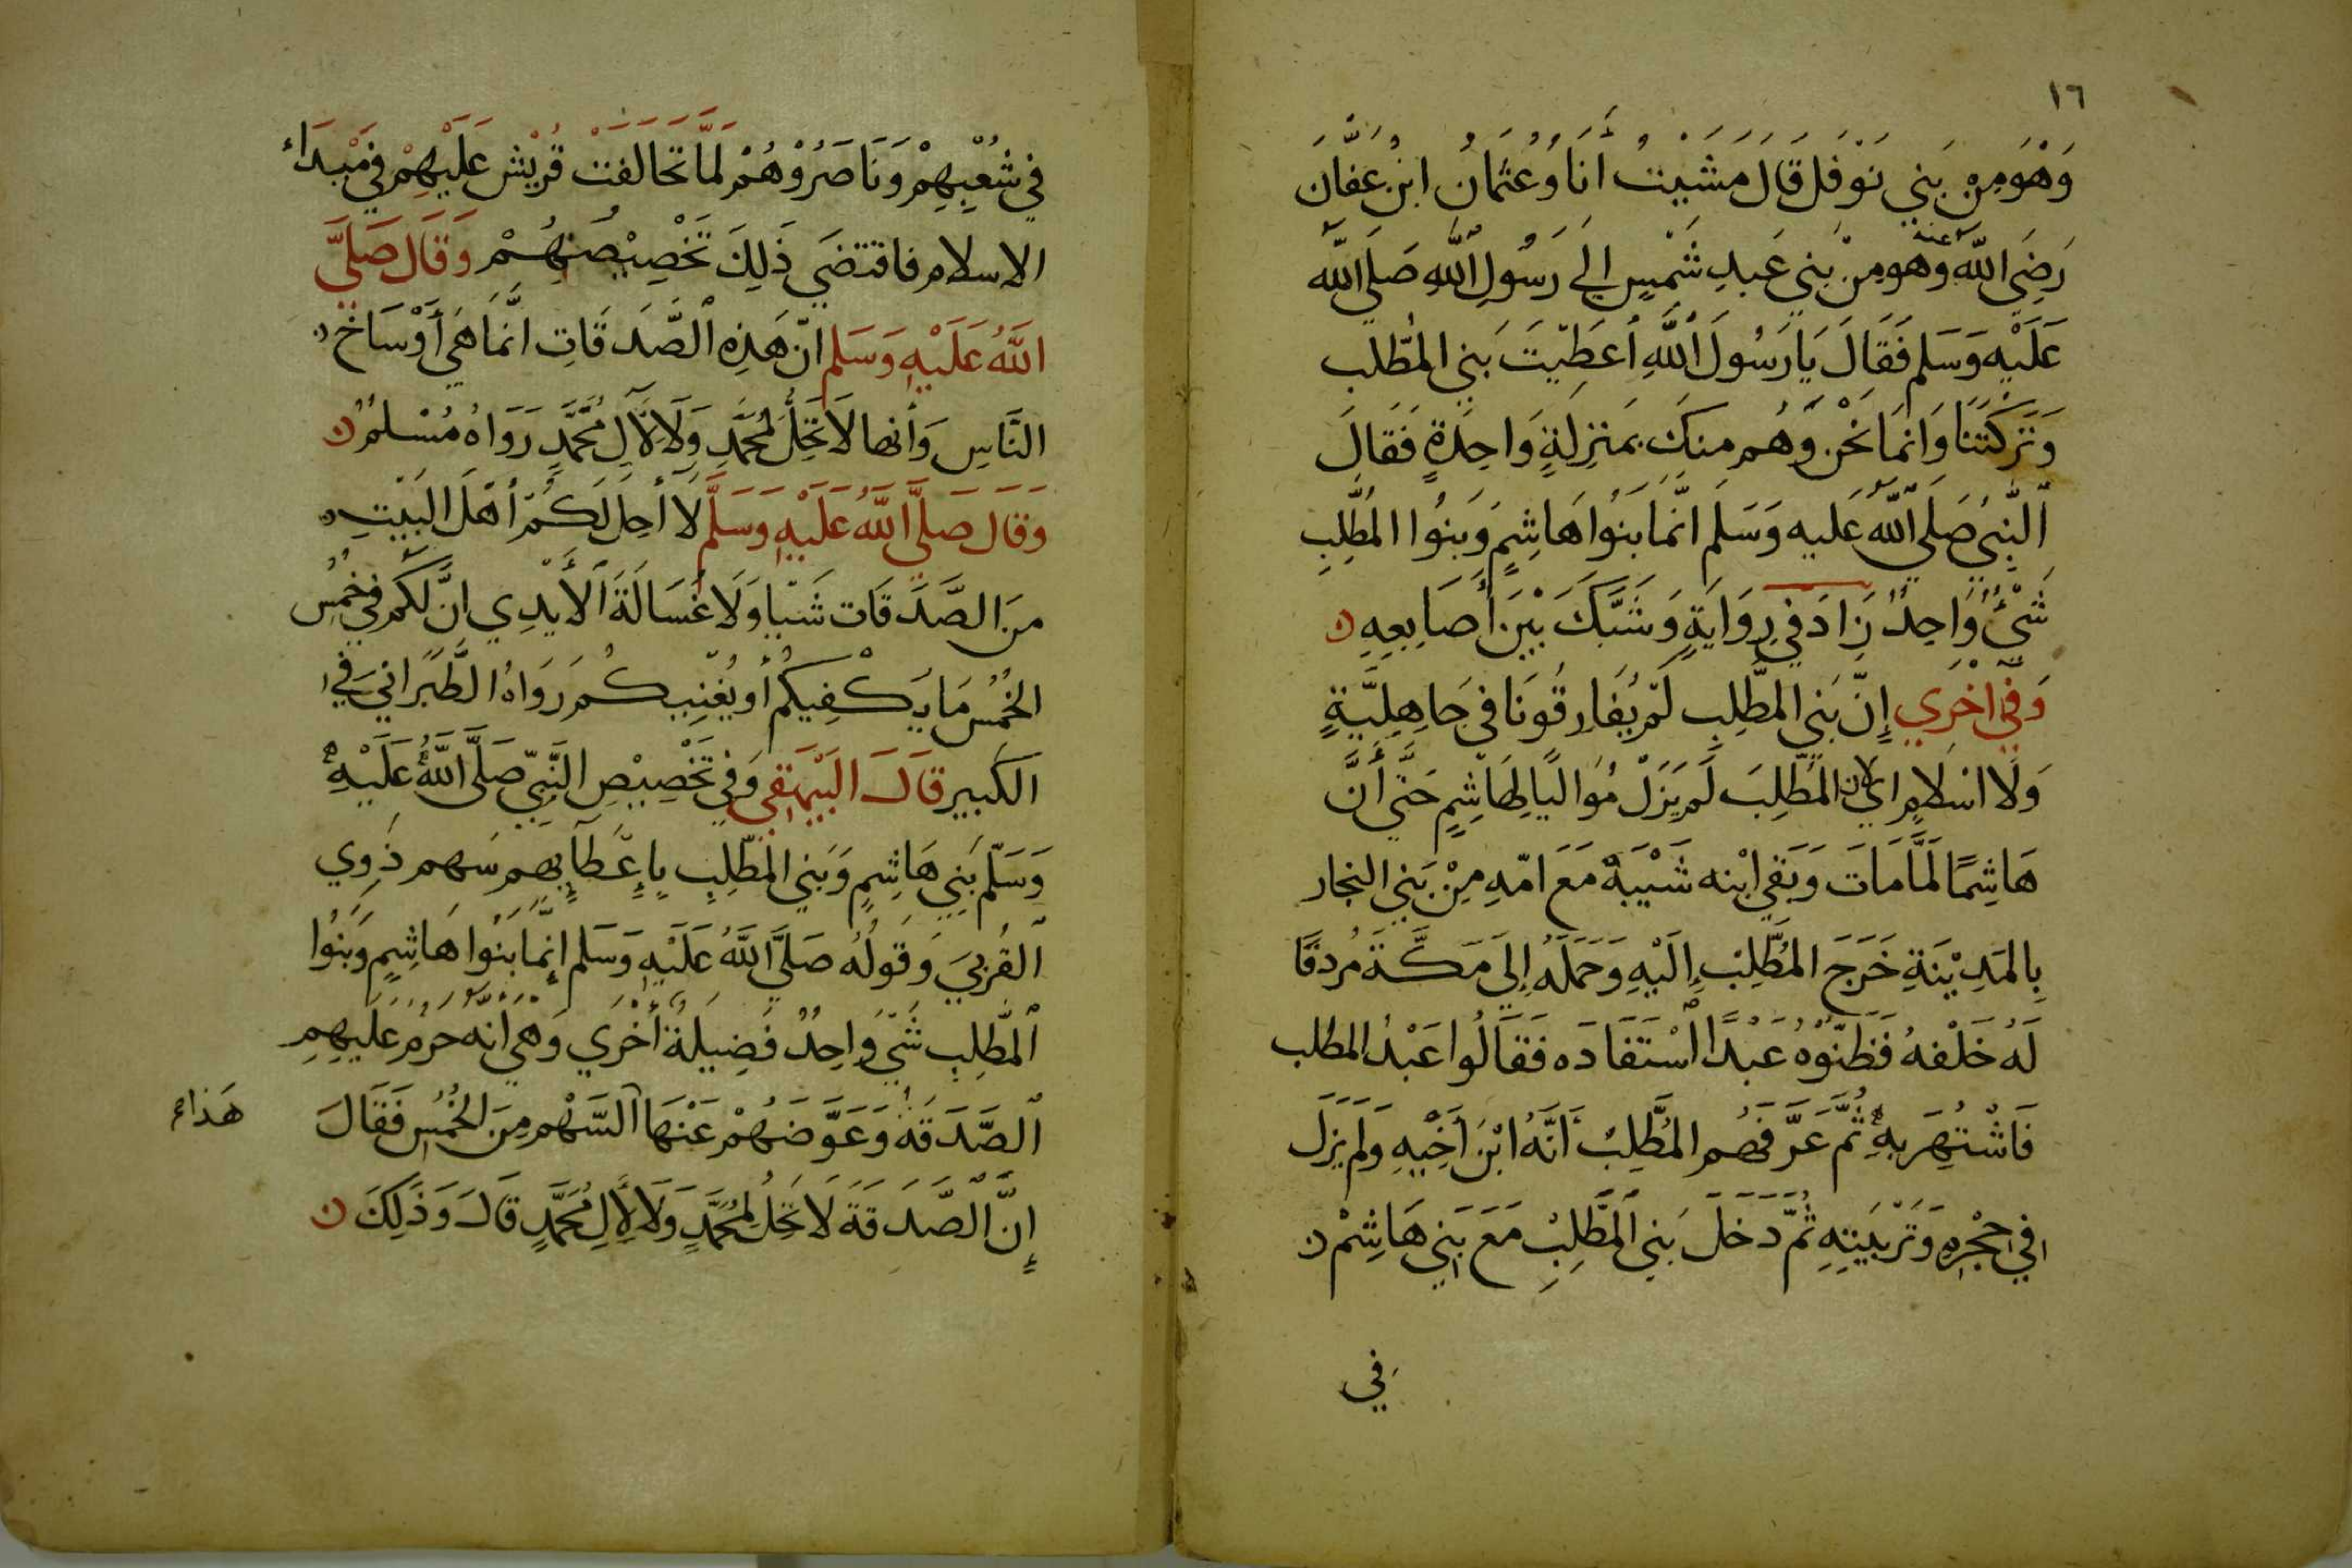 ١٦
وَهُوَ مِنْ بَنِي نَوْفَل قَالَ مَشَيْتُ أَنَا وَعُثمَانُ ابْنُ عَفَّانَ
رَضِيَ اللّٰه عنه وهو مِنْ بَنِي عَبدِ شَمْسٍ إلَي رَسُولِ اللّٰهِ صَلَّي اللّٰه
عَلَيْهِ وَسَلم فَقَالَ يَا رَسُولَ اللّٰهِ أعْطَيْتَ بَنِي المُطّلب
وَتَرَكْتَنَا وَانمَا نَحْن وَهُم مِنكَ بمَنزِلَةٍ وَاحِدَةٍ فَقَالَ
النَّبِيُ صَلَي اللّٰهُ عَليه وَسَلَم انَّمَا بَنُوا هَاشِمٍ وَبَنُوا المُطَّلِبِ
شَيْءٌ وَاحِدٌ زَادَ فِي رِوَايَةٍ وَشَبَّكَ بَيْنَ أصَابِعِهِ ن
وَفِي اُخْرَي إنّ بَنِي المُطَّلِبِ لَمْ يُفَارِقُونَا فِي جَاهِلِيَّةٍ
وَلَا اسْلَامٍ اي لان المُطَّلِبَ لَم يَزَلْ مُوَاليًا لِهَاشِمٍ حَتَّي أَنَّ
هَاشِمًا لَمَّا مَاتَ وَبَقِي ابْنه شَيْبَةُ مَعَ امّهِ مِنْ بَنِي النجار
بِالمَدِيْنَةِ خَرَجَ المُطَّلِبُ إلَيْهِ وَحَمَلَهُ إلَي مَكَّةَ مُردفًا
لَهُ خَلْفهُ فَظَنّوْهُ عَبْدًا اسْتَفَادَه فَقَالُوا عَبْدُ المطلب
فَاشْتُهِرَ بِهِ ثُمَّ عَرَّفَهُم المُطَّلِبُ أَنَّهُ ابْنَ أخِيْهِ وَلَم يَزَل
في حِجْرِهِ وَتَرْبَيَتِهِ ثُمّ دَخَلَ بَنِي المُطَّلِبْ مَعَ بَنِي هَاشِمْ ن
فِي
فِي شُعْبِهِمْ وَنَاصَرُوْهُمْ لَمَّا تَحَالَفَتْ قُرَيْش عَلَيْهِمْ فِي مَبْدَاء
الاسلام فاقتضَي ذَلِكَ تَخْصِيْصَهُمْ وَقَال صَلَّي
اللّٰهُ عَلَيْهِ وَسَلم انّ هَذِهِ الصَّدَقَاتِ انَّمَا هَي أَوْسَاخ
النَّاسِ وَأنها لَا تَحِلُّ لمُحَمَّدٍ وَلَا لِآلِ مُحَمَّدٍ رَوَاهُ مُسْلمٌ ن
وَقَال صَلَّي اللّٰهُ عَلَيْهِ وَسَلَّم لَا أحِل لَكُمْ أهْلَ البَيْتِ
مِنَ الصَّدَقَات شَيْا وَلَا غُسَالَةَ الأيْدِي انَّ لَكُم فِي خُمُسِ
الخُمُسِ مَا يَكْفِيكُم أو يُغْنِيكُم رَوَاهُ الطَّبَرَانِيَ فِي
الكَبِير قَالَ البَيْهَقِي وَفِي تَخْصِيْصِ النَّبِيّ صَلَّي اللّٰهُ عَلَيْهِ
وَسَلّم بَنِي هَاشِمٍ وَبَنِي المُطَّلِبِ بِإعْطَآئِهِم سَهم ذَوِي
القُرْبَي وَقَولُه صَلَّي اللّٰهُ عَلَيْهِ وَسَلم إنَّمَا بَنُوا هَاشِمٍ وَبَنُوا
المُطَّلِبِ شَيْ وَاحِدٌ فَضِيلَةٌ أُخْرَي وَهْيَ انّهُ حَرُمَ عَلَيهِم
الصَّدَقَةُ وَعَوَّضَهُمْ عَنْهَا السَّهْم مِنَ الخُمُسِ فَقَالَ
هَذا
إنَّ الصَّدَقَةَ لَا تَحِلُ لمُحَمَّدٍ وَلَا لِآلِ مُحَمَّدٍ قَالَ وَذَلِكَ ن